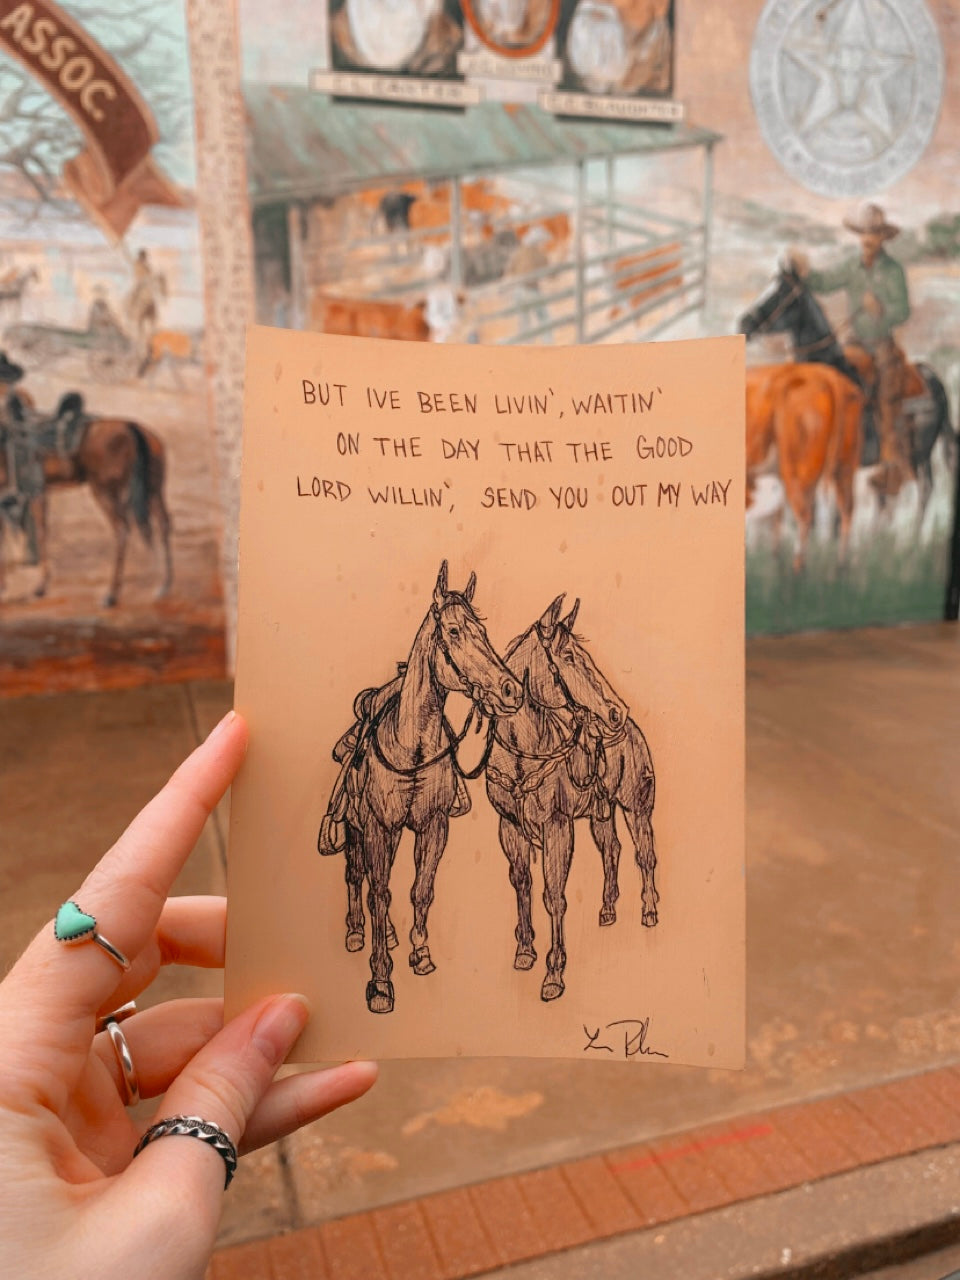 ASSOC.
BUT IVE BEEN LIVIN', WAITIN'
ON THE DAY THAT THE GOOD
LORD WILLIN', SEND YOU OUT MY WAY